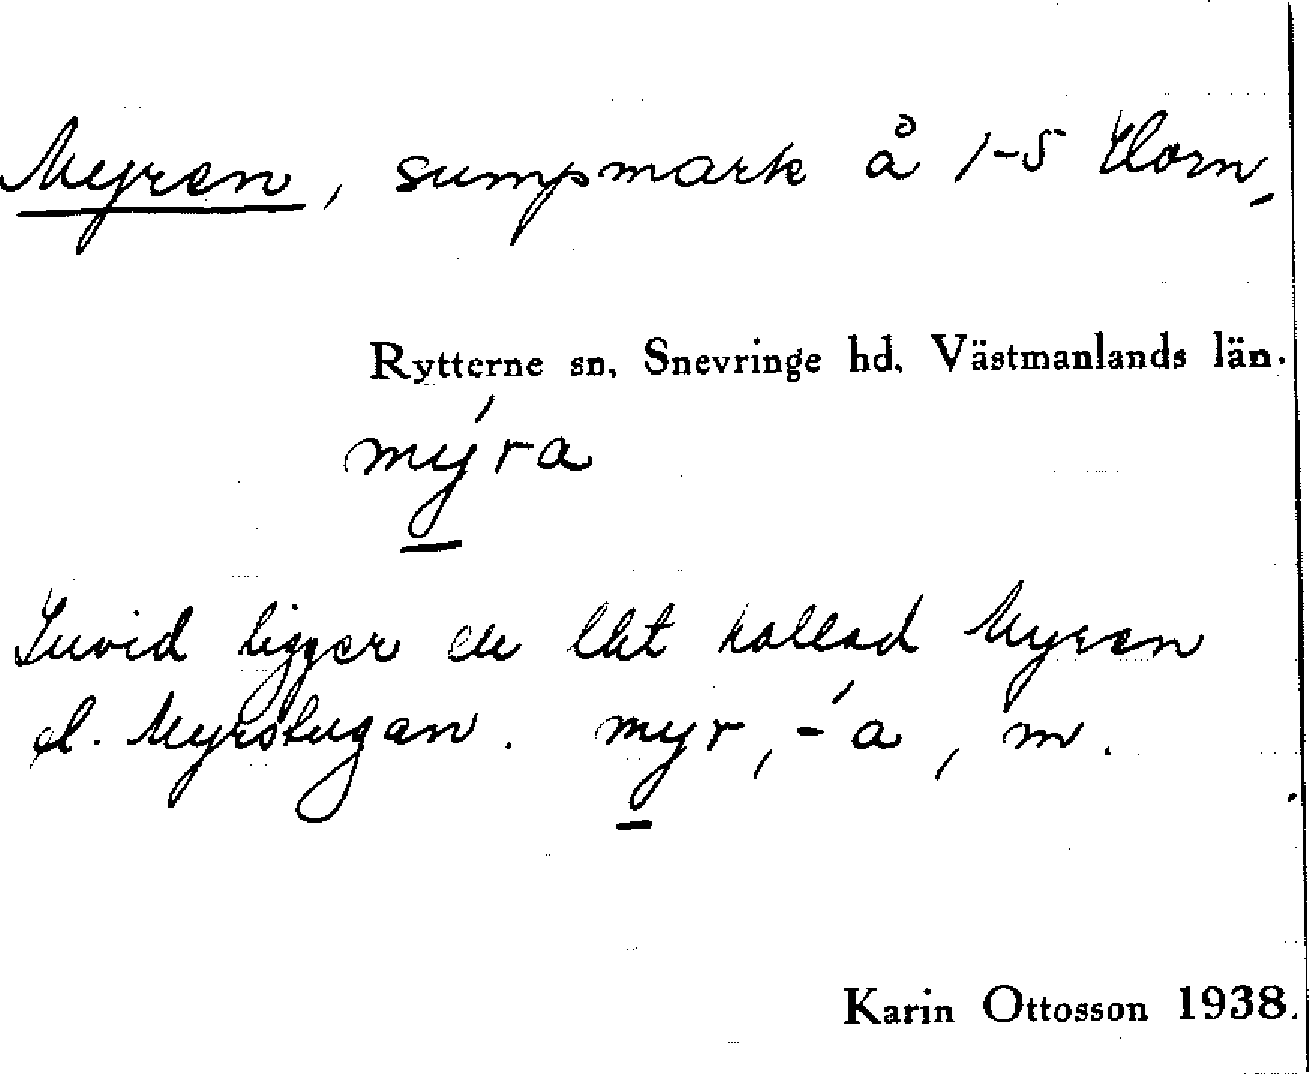 Myren, sumpmark å 1-5 Horn,
Rytterne sn, Snevringe hd, Västmanlands län.
mýra
Invid ligger en lht kallad Myren
el. Myrstugan. myr, -́a, m.
Karin Ottosson 1938.